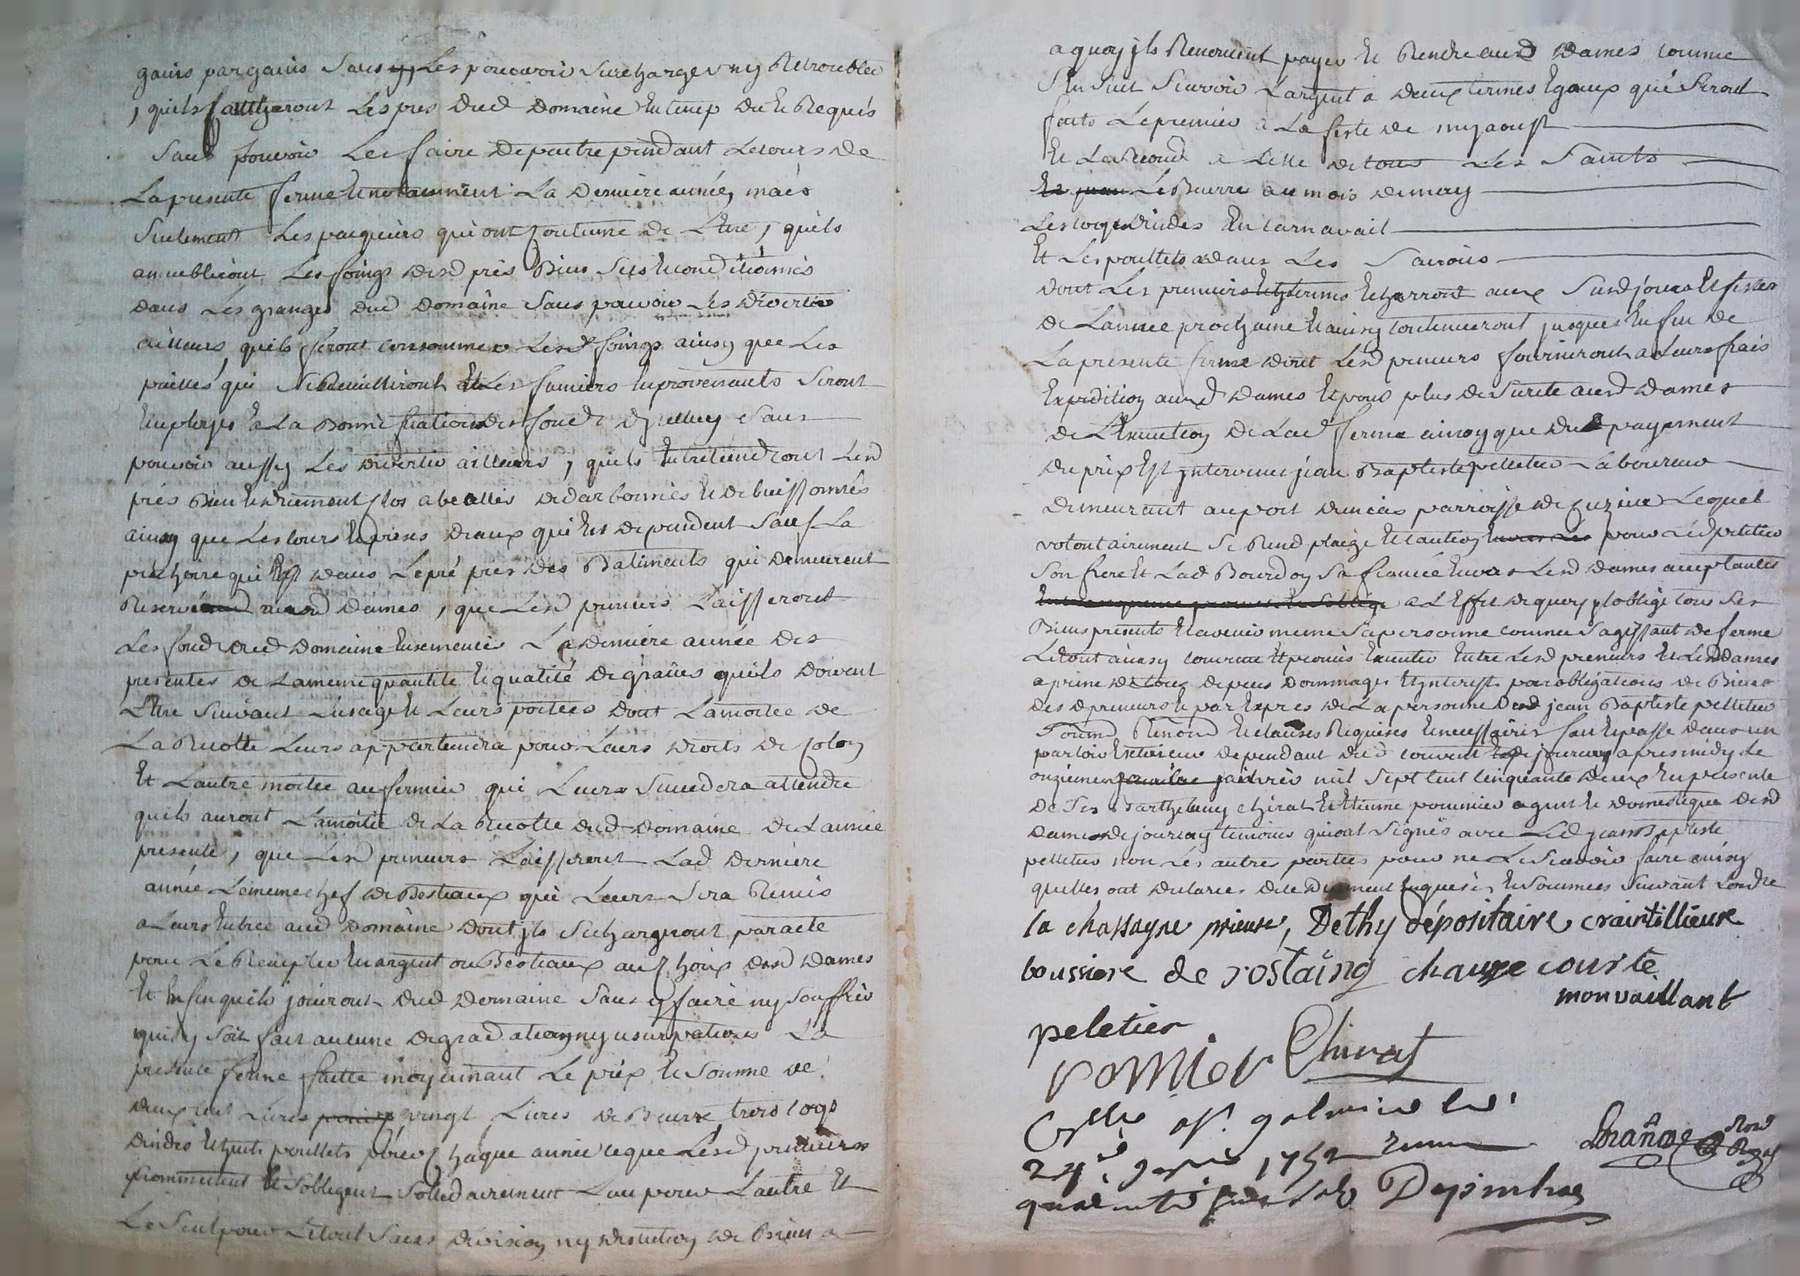 gains par gains sans les pouvoir surcharger ny
, quils faucheront les pres dud domaine en temp du et Requis
sans pouvoir les faire depaitre pendant le cours de
la presente ferme et notamment la derniere année, mais
seulement les paquiers qui ont coutume de l'etre, quils
les foings desd prés Bien secs et conditionnés
dans les granges dud domaine sans pouvoir les divertir
ailleurs, quils feront consommer lesd foings ainsy que les
pailles qui se Recuilliront et les fumiers en provenants seront
employes a la Bonnification des fonds dycelluy sans
pouvoir aussy les divertir ailleurs, quils entretiendront lesd
prés Bien et duement clos abeallés dedarbonnés et debuissonnés
ainsy que les cours et prises deaux qui en dependent sauf la
qui est dans le pré pres des Batiments qui demeurent
Reservé auxd dames, que lesd preneurs laisseront
les fonds dud domaine ensemencés la derniere année des
presentes de la meme quantité et qualité de graines quils doivent
l'etre suivant l'usage et leurs portées dont la moitié de
la Recolte leurs appartiendra pour leurs droits de colon
et l'autre moitié au fermier qui leurs succedera attendu
quils auront la moitié de la Recolte dud domaine de l'année
presente, que lesd preneurs laisseront lad derniere
année le meme chef de Bestiaux qui leurs sera Remis
a leurs entrée aud domaine dont ils se chargeront par acte
pour le Remplir en argent ou Bestiaux au choix desd dames
et enfin quils jouiront dud domaine sans y faire ny souffrir
quil y soit fait aucune degradation ny usurpations la
presente ferme faitte moyennant le prix et somme de
deux cent livres vingt livres de Beurre trois coqs
dindes et huit poullets pour chaque année ce que lesd preneurs
promettent et s'obligent solidairement l'un pour l'autre et
le seul pour le tout sans division ny discution de Biens a
a quoy ils Renoncent payer et Rendre auxd dames comme
s'en suit scavoir l'argent a deux termes egaux qui seront
faits le premier a la feste de my aoust
et le second a celle de tous les saints
le Beurre au mois de may
les coqs dindes en carnavail
et les poullets dans les saisons
dont les premiers termes echerront aux susd jours et festes
de l'année prochaine et ainsy continueront jusques en fin de
la presente ferme dont lesd preneurs fourniront a leurs frais
expedition auxd dames et pour plus de sureté auxd dames
de l'execution de lad ferme ainsy que du payement
du prix est intervenu jean Baptiste pelletier laboureur
demeurant au port parroisse de cuzieu lequel
volontairement se Rend plaige et caution pour led pelletier
son frere et lad Bourdon sa fiancée envers lesd dames acceptantes
a l'effet de quoy il oblige tous ses
Biens presents et avenir meme sa personne comme s'agissant de ferme
le tout ainsy convenu et promis executer entre lesd preneurs et lesd dames
a peine de tous depens dommages et interests par obligations de Biens
desd preneurs et par expres de la personne dud jean Baptiste pelletier
soumd Renond et clauses Requises et necessaires fait et passé dans un
parloir exterieur dependant dud couvent de jourcey apres midy le
onzieme janvier mil sept cent cinquante deux en presence
de srs Barthelemy chirat et etienne pommier agent et domestique desd
dames de jourcey temoins qui ont signés avec led jean Baptiste
pelletier non les autres parties pour ne le scavoir faire ainsy
quelles ont declarées de ce duement enquises et sommées suivant l'ordre
la chassagne prieure, Dethy dépositaire craintillieux
boussiere de rostaing chaure courte
monvaillant
peletier
pomier Chirat
Collé a St galmier le
24e janvier 1752
Depimhas
Lorange Nore
Royal